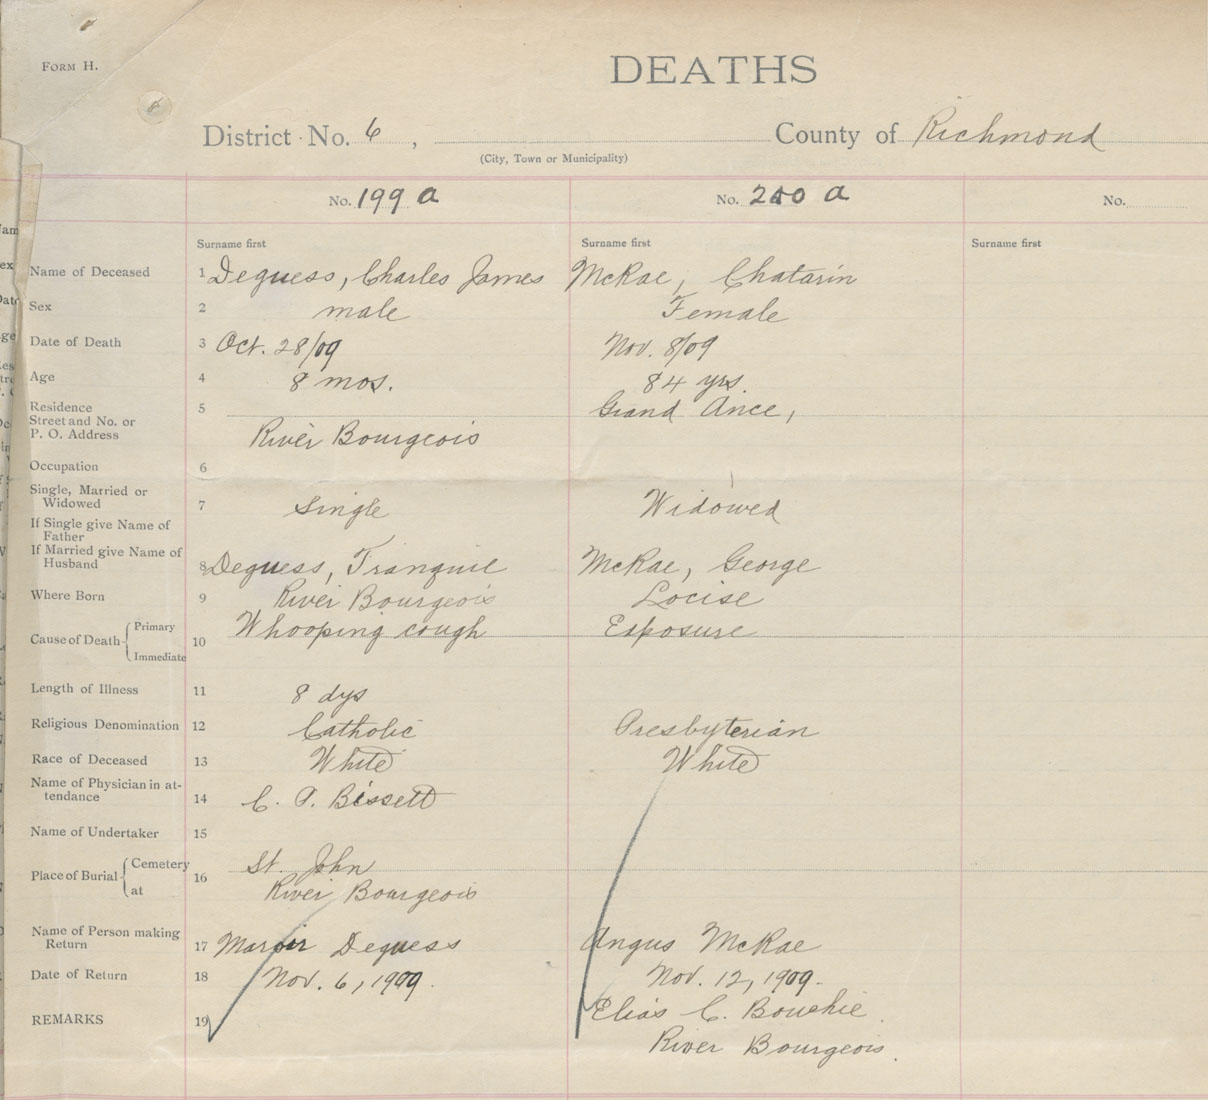 FORM H.
DEATHS
District No. 6, County of Richmond
(City, Town or Municipality)
No. 199 a No. 200 a No.
Surname first Surname first Surname first
Name of Deceased 1 Deguess, Charles James McRae, Chatarin
Sex 2 male Female
Date of Death 3 Oct. 28/09 Nov. 8/09
Age 4 8 mos. 84 yrs.
Residence 5 Grand Ance,
Street and No. or
P. O. Address River Bourgeois
Occupation 6
Single, Married or
Widowed 7 Single Widowed
If Single give Name of
Father
If Married give Name of
Husband 8 Deguess, Tranquil McRae, George
Where Born 9 River Bourgeois Locise
Cause of Death Primary 10 Whooping cough Exposure
Immediate
Length of Illness 11 8 dys
Religious Denomination 12 Catholic Presbyterian
Race of Deceased 13 White White
Name of Physician in at-
tendance 14 C. P. Bissett
Name of Undertaker 15
Place of Burial Cemetery 16 St. John
at River Bourgeois
Name of Person making
Return 17 Deguess Angus McRae
Date of Return 18 Nov. 6, 1909. Nov. 12, 1909.
REMARKS 19 Elias C. Bouchie.
River Bourgeois.